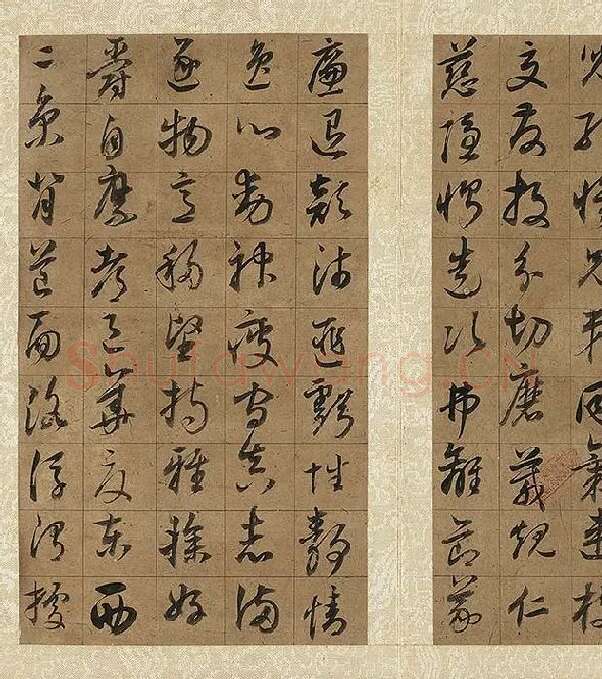 兒孔懷兄弟同氣連枝
交友投分切磨箴規仁
慈隱惻造次弗離節義
廉退顛沛匪虧性靜情
逸心動神疲守真志滿
逐物意移堅持雅操好
爵自縻都邑華夏東西
二京背芒面洛浮渭據
Shufawang.CN